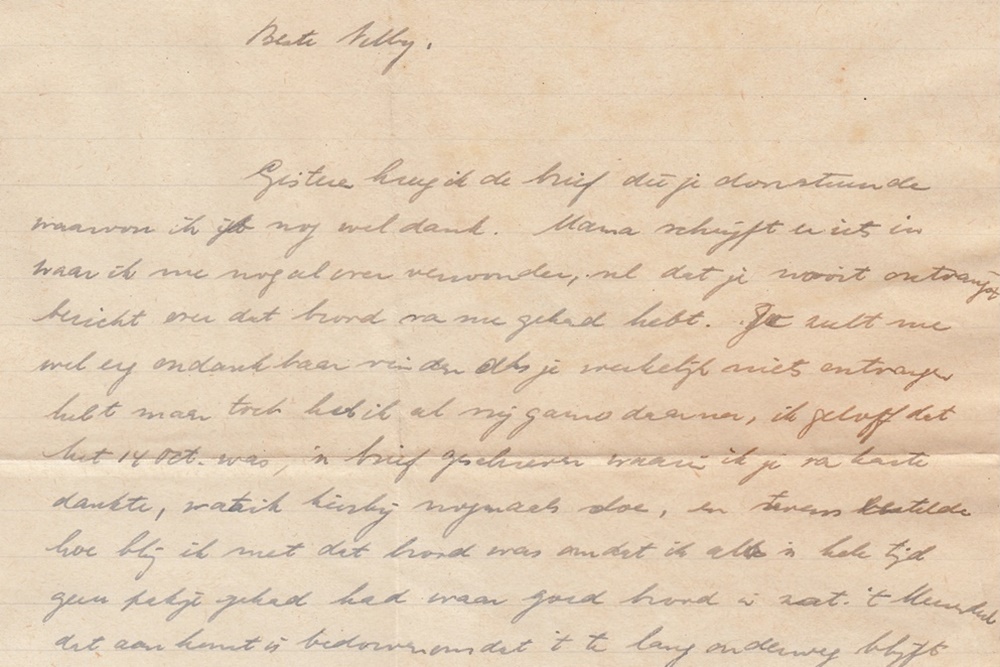 Beste Nelly.
Gisteren kreeg ik de brief die je doorstuurde
waarvoor ik je nog wel dank. Mama schrijft er iets in
waar ik me nogal over verwonder, nl dat je nooit ontvangst
bericht over dat brood van me gehad hebt. Je zult me
wel erg ondankbaar vinden als je werkelijk niets ontvangen
hebt maar toch heb ik al daarna, ik geloof dat
het 14 Oct. was, 'n brief geschreven waarin ik je van harte
dankte, wat ik hierbij nogmaals doe, en tevens vertelde
hoe blij ik met dat brood was omdat ik al 'n hele tijd
geen pakje gehad had waar goed brood in zat. 't Meeste
dat aankomt is bedorven omdat 't te lang onderweg blijft